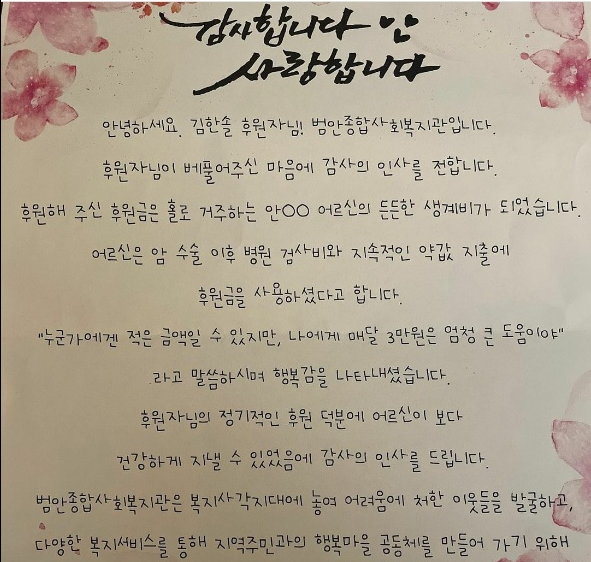 감사합니다 만
사랑합니다
안녕하세요. 김한솔 후원자님! 범안종합사회복지관입니다.
후원자님이 베풀어주신 마음에 감사의 인사를 전합니다.
후원해 주신 후원금은 홀로 거주하는 안○○ 어르신의 든든한 생계비가 되었습니다.
어르신은 암 수술 이후 병원 검사비와 지속적인 약값 지출에
후원금을 사용하셨다고 합니다.
"누군가에겐 적은 금액일 수 있지만, 나에게 매달 3만원은 엄청 큰 도움이야"
라고 말씀하시며 행복감을 나타내셨습니다.
후원자님의 정기적인 후원 덕분에 어르신이 보다
건강하게 지낼 수 있었음에 감사의 인사를 드립니다.
범안종합사회복지관은 복지사각지대에 놓여 어려움에 처한 이웃들을 발굴하고,
다양한 복지서비스를 통해 지역주민과의 행복마을 공동체를 만들어 가기 위해